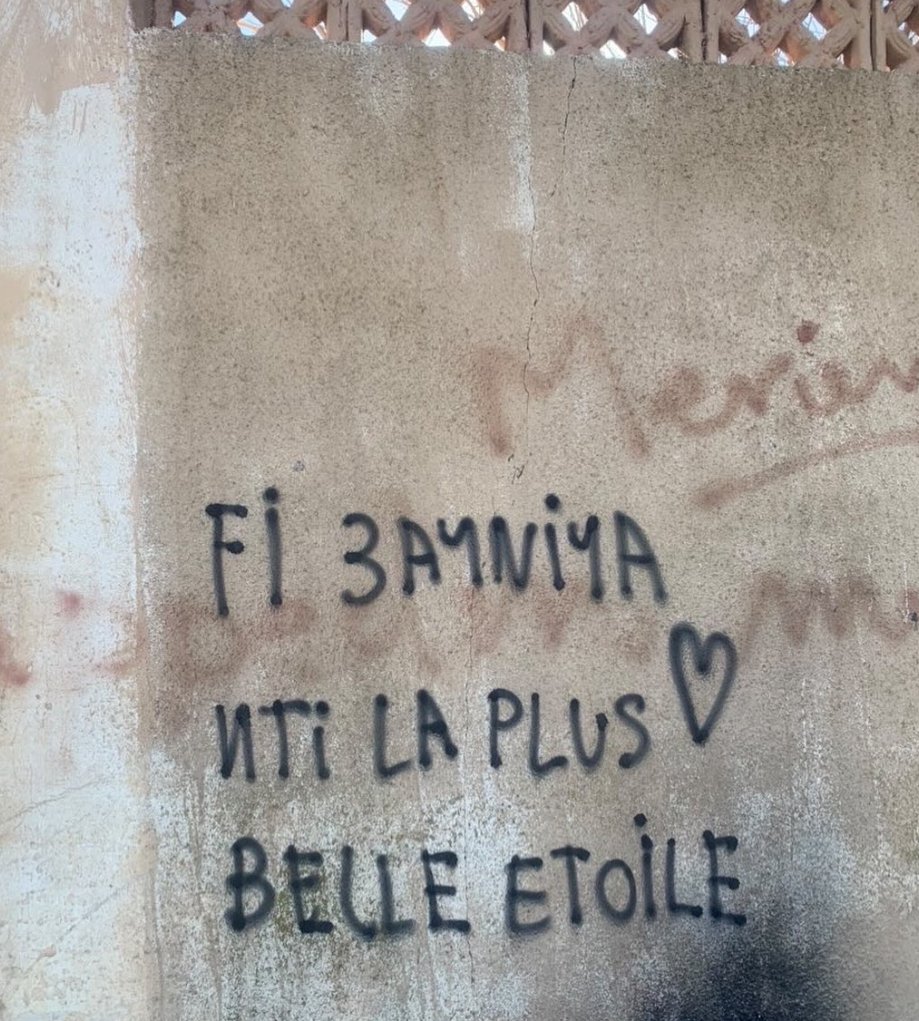 Fi 3AYNiYA
NTi LA PLUS
BELLE ETOiLE